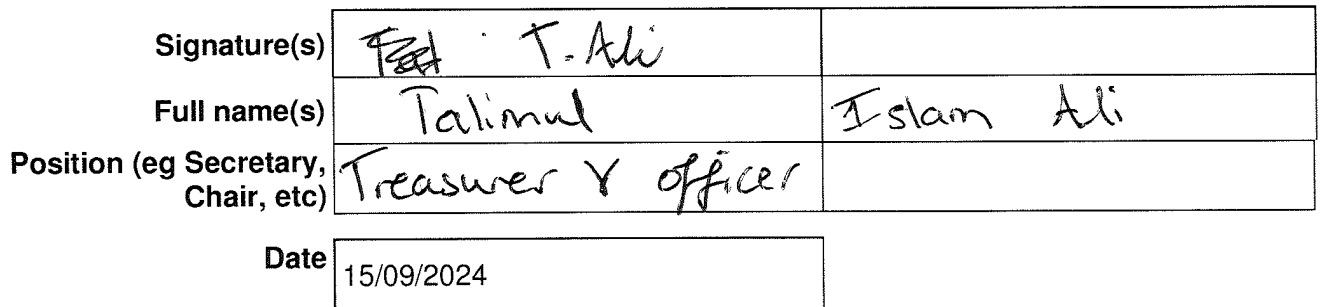 Signature(s) T. Ali
Full name(s) Talimul Islam Ali
Position (eg Secretary,
Chair, etc) Treasurer & officer
Date 15/09/2024